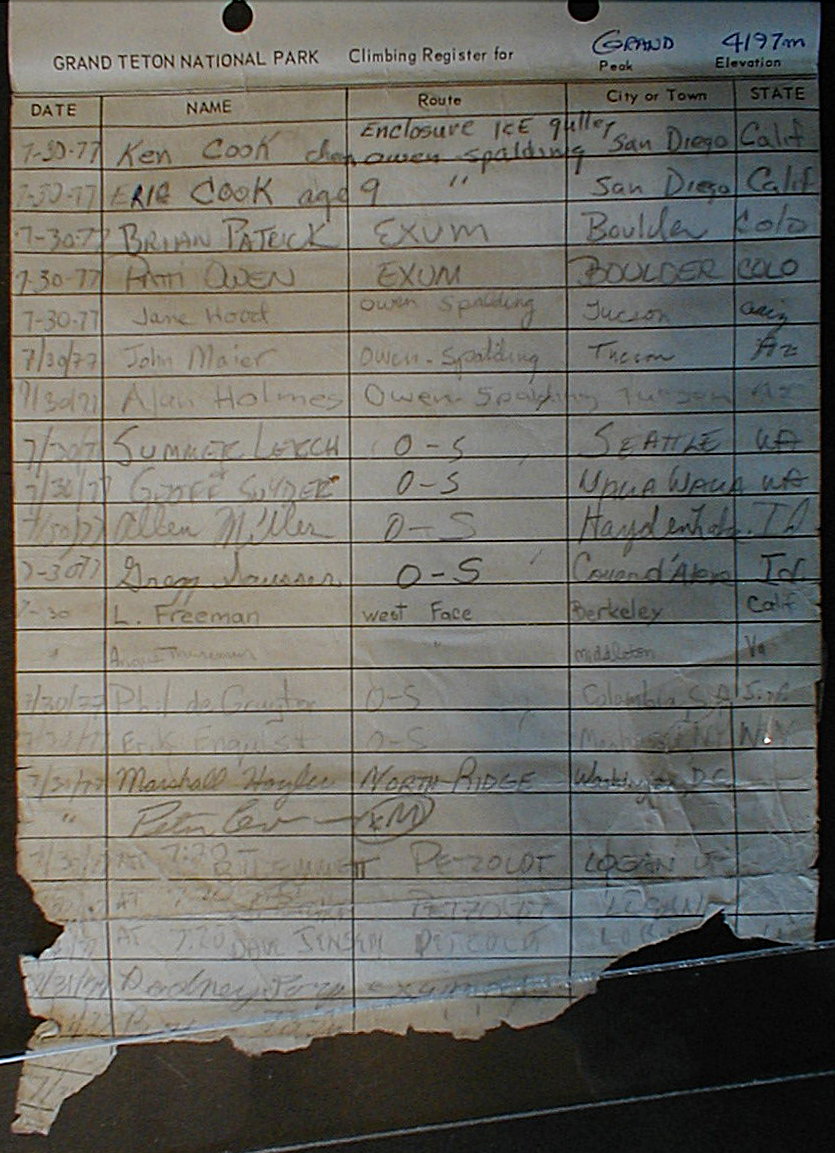 GRAND TETON NATIONAL PARK Climbing Register for GRAND 4197m
Peak Elevation
DATE NAME Route City or Town STATE
Enclosure ICE gulley
7-30-77 Ken Cook then owen spalding San Diego Calif
7-30-77 ERIC COOK age 9 " San Diego Calif
7-30-77 BRIAN PATRICK EXUM Boulder Colo
7-30-77 PATTI OWEN EXUM BOULDER COLO
7-30-77 Jane Hood Owen Spalding Tucson Ariz
7/30/77 John Maier Owen-Spalding Tucson Az
7/30/77 Alan Holmes Owen-Spalding Tucson Az
7/30/7 SUMMER LEECH O-S SEATTLE WA
7/30/77 GEOFF SNYDER O-S WALLA WALLA WA
7/30/77 Allen Miller O-S Hayden Id.
7-30-77 Gregg O-S Coeur d'Alene Id.
7-30 L. Freeman West Face Berkeley Calif
" " Middleton Va
7/30/77 Phil de Gruyter O-S Columbia, S.C.
Erik Enquist O-S NY
7/30/77 Marshall NORTH RIDGE Washington, D.C.
" Peter
7/30/77 AT 7:20 PETZOLDT LOGAN UT
AT 7:20 PETZOLDT LOGAN
AT 7:20 DAVE JENSEN PETZOLDT
7/31/77 Rodney Exum